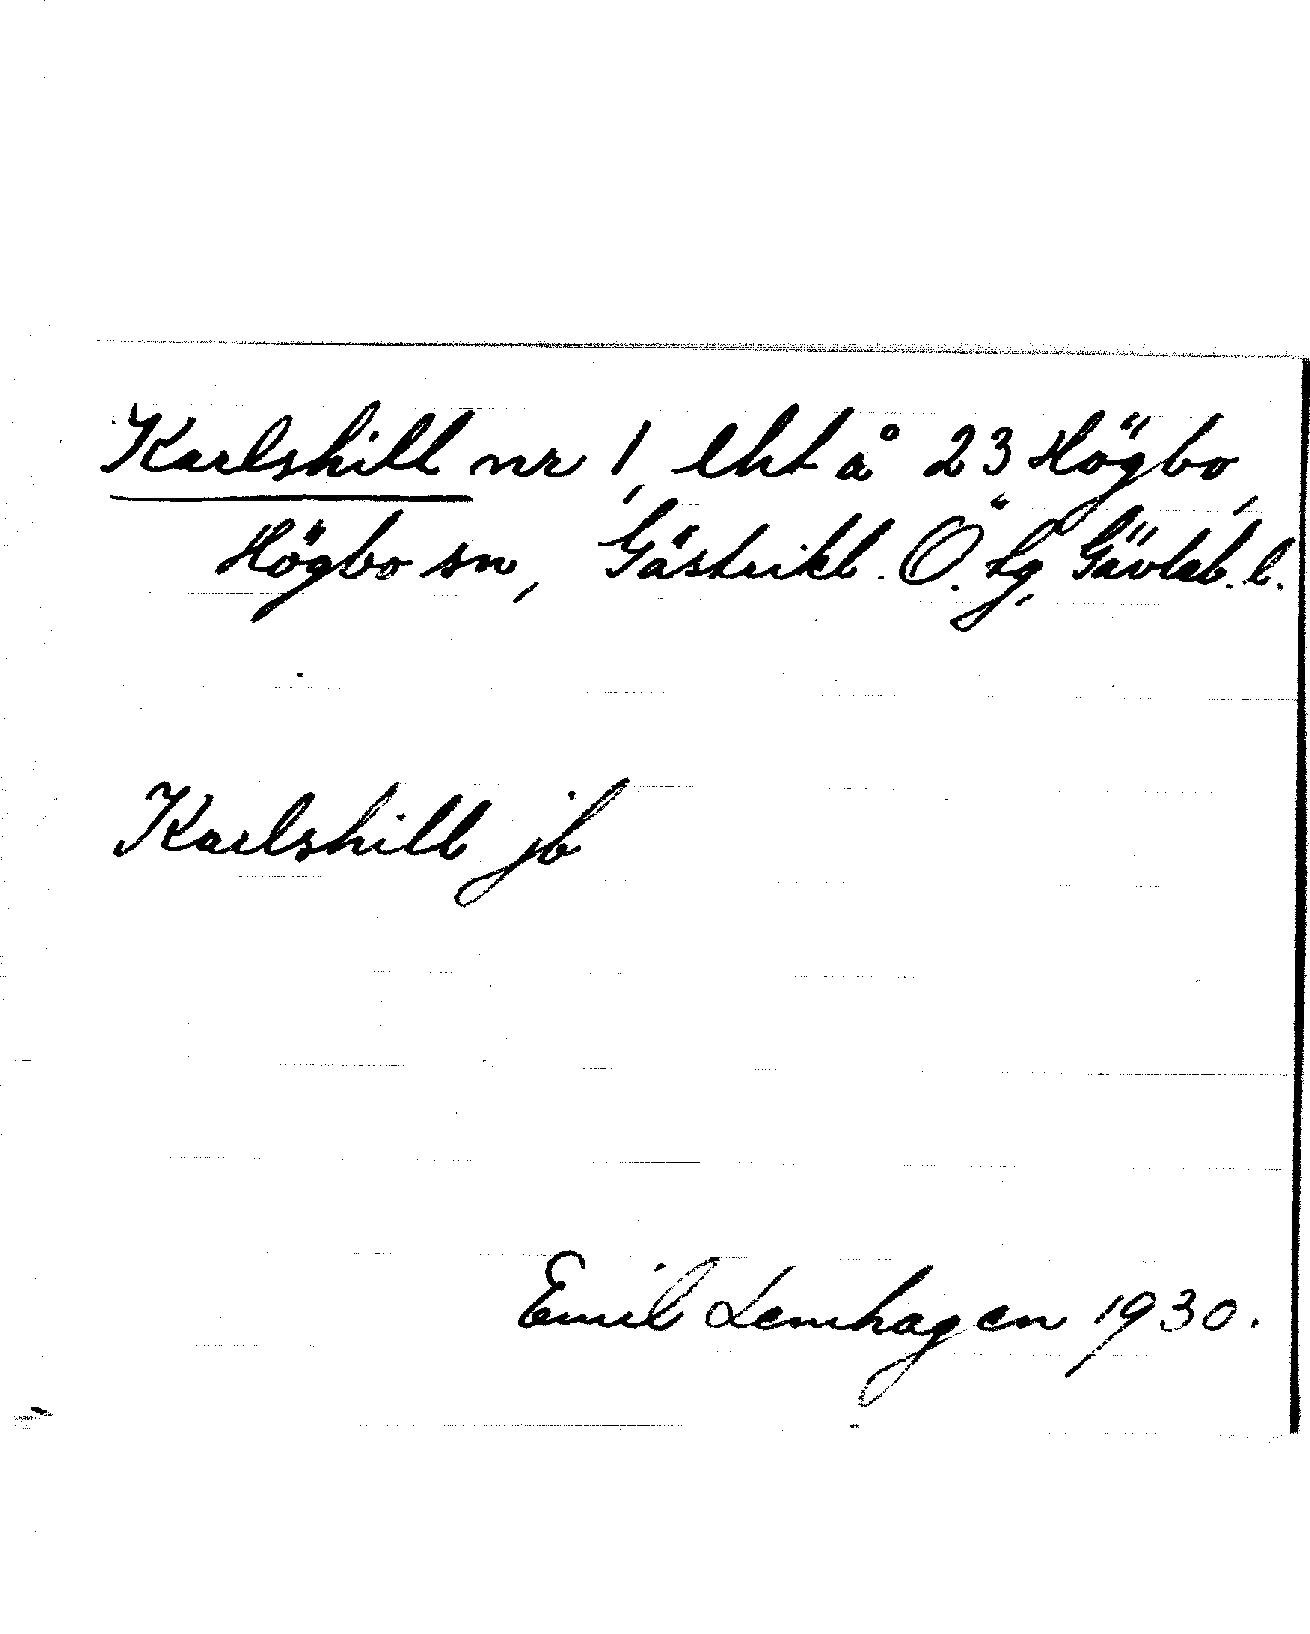 Karlshill nr 1, lht å 23 Högbo,
Högbo sn, Gästrikl. Ö. tg, Gävleb. l.
Karlshill jb
Emil Lemhagen 1930.